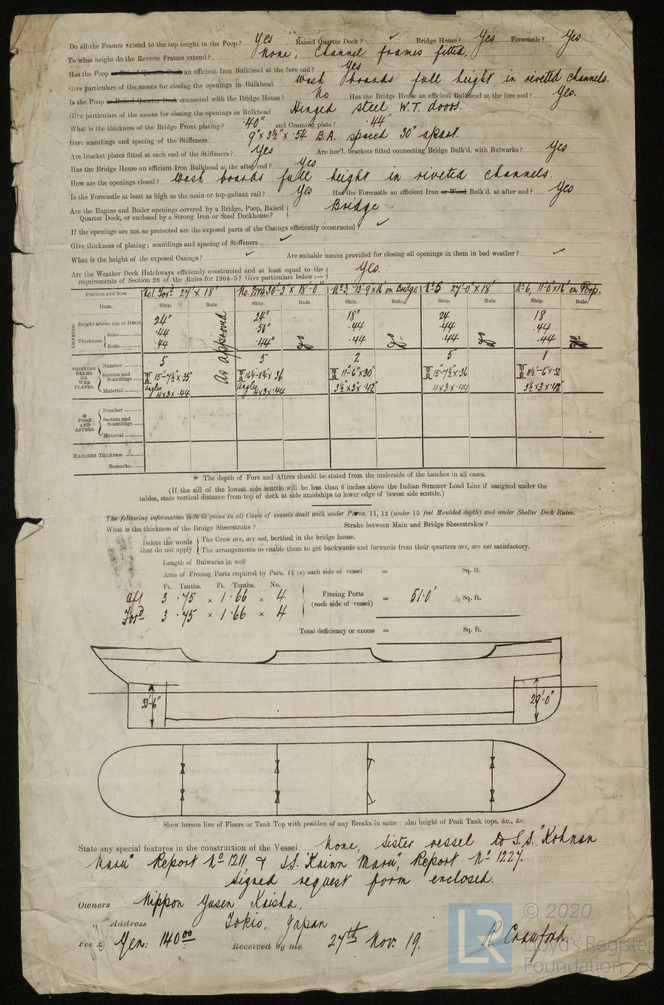 Do all the Frames extend to the top height in the Poop? Yes Raised Quarter Deck? ✓ Bridge House? Yes Forecastle? Yes
To what height do the Reverse Frames extend? None, Channel frames fitted.
Has the Poop or Raised Quarter Deck an efficient Iron Bulkhead at the fore end? Yes
Give particulars of the means for closing the openings in Bulkhead Wash boards full height in rivetted channels.
Is the Poop or Raised Quarter Deck connected with the Bridge House? No Has the Bridge House an efficient Bulkhead at the fore end? Yes.
Give particulars of the means for closing the openings in Bulkhead Hinged steel W.T. doors.
What is the thickness of the Bridge Front plating? .40" and Coaming plate? .44"
Give scantlings and spacing of the Stiffeners 9" x 3½" x .54 B.A. spaced 30" apart.
Are bracket plates fitted at each end of the Stiffeners? Yes Are hor'l. brackets fitted connecting Bridge Bulk'd. with Bulwarks? Yes
Has the Bridge House an efficient Iron Bulkhead at the after end? Yes
How are the openings closed? Wash boards full height in riveted channels.
Is the Forecastle at least as high as the main or top-gallant rail? Yes Has the Forecastle an efficient Iron or Wood Bulk'd. at after end? Yes
Are the Engine and Boiler openings covered by a Bridge, Poop, Raised Quarter Deck, or enclosed by a Strong Iron or Steel Deckhouse? Bridge
If the openings are not so protected are the exposed parts of the Casings efficiently constructed? ✓
Give thickness of plating; scantlings and spacing of Stiffeners ✓
What is the height of the exposed Casings? ✓ Are suitable means provided for closing all openings in them in bad weather? ✓
Are the Weather Deck Hatchways efficiently constructed and at least equal to the requirements of Section 28 of the Rules for 1904-5? Give particulars below:— Yes.
Position and Size. No1 For'd 27' x 18' No. 2 30'-3" x 18'-0" No 3, 13'-9 x 16' on Bridge No 5 27'-0" x 18' No 6, x 16' on Poop.
Item. Ship. Rule. Ship. Rule. Ship. Rule. Ship. Rule. Ship. Rule.
COAMING Height above top of DECK 24" 24" 18" 24 18
Thickness Sides .44 .44 .44 .44
Ends .44 .44" do .44 do .44 do .44
As approved
SHIFTING BEAMS OR WEB PLATES Number 5 5 2 5 1
Section and Scantlings
Material
angles 4x3x.44 angles 4x3x.44 4x3x.44
* FORE AND AFTERS. Number
Section and Scantlings
Material
HATCHES Thickness
Remarks.
* The depth of Fore and Afters should be stated from the underside of the hatches in all cases.
(If the sill of the lowest side scuttle will be less than 6 inches above the Indian Summer Load Line if assigned under the
tables, state vertical distance from top of deck at side amidships to lower edge of lowest side scuttle.)
The following information is to be given in all Cases of vessels dealt with under Paras. 11, 12 (under 15 feet Moulded depth) and under Shelter Deck Rules.
What is the thickness of the Bridge Sheerstrake? Strake between Main and Bridge Sheerstrakes?
Delete the words that do not apply
The Crew are, are not, berthed in the bridge house.
The arrangements to enable them to get backwards and forwards from their quarters are, are not satisfactory.
Length of Bulwarks in well
Area of Freeing Ports required by Para. 11 (e) each side of vessel = Sq. ft.
Ft. Tenths. Ft. Tenths. No.
Aft 3 .75 × 1.66 × 4
For'd 3 .75 × 1.66 × 4
Freeing Ports (each side of vessel) = 51.0' Sq. ft.
Total deficiency or excess = Sq. ft.
29'-0"
Show hereon line of Floors or Tank Top with position of any Breaks in same: also height of Peak Tank tops, &c., &c.
State any special features in the construction of the Vessel None, Sister vessel to S.S. "Kohnan
Maru" Report No 1211 & S.S. "Kaian Maru", Report No 1227.
Signed request form enclosed.
Owners Nippon Yusen Kaisha.
Address Tokio, Japan
Fee £ Yen: 140 00 Received by me 27th Nov. 19. R. Crawford
LR © 2020
Lloyd's Register
Foundation